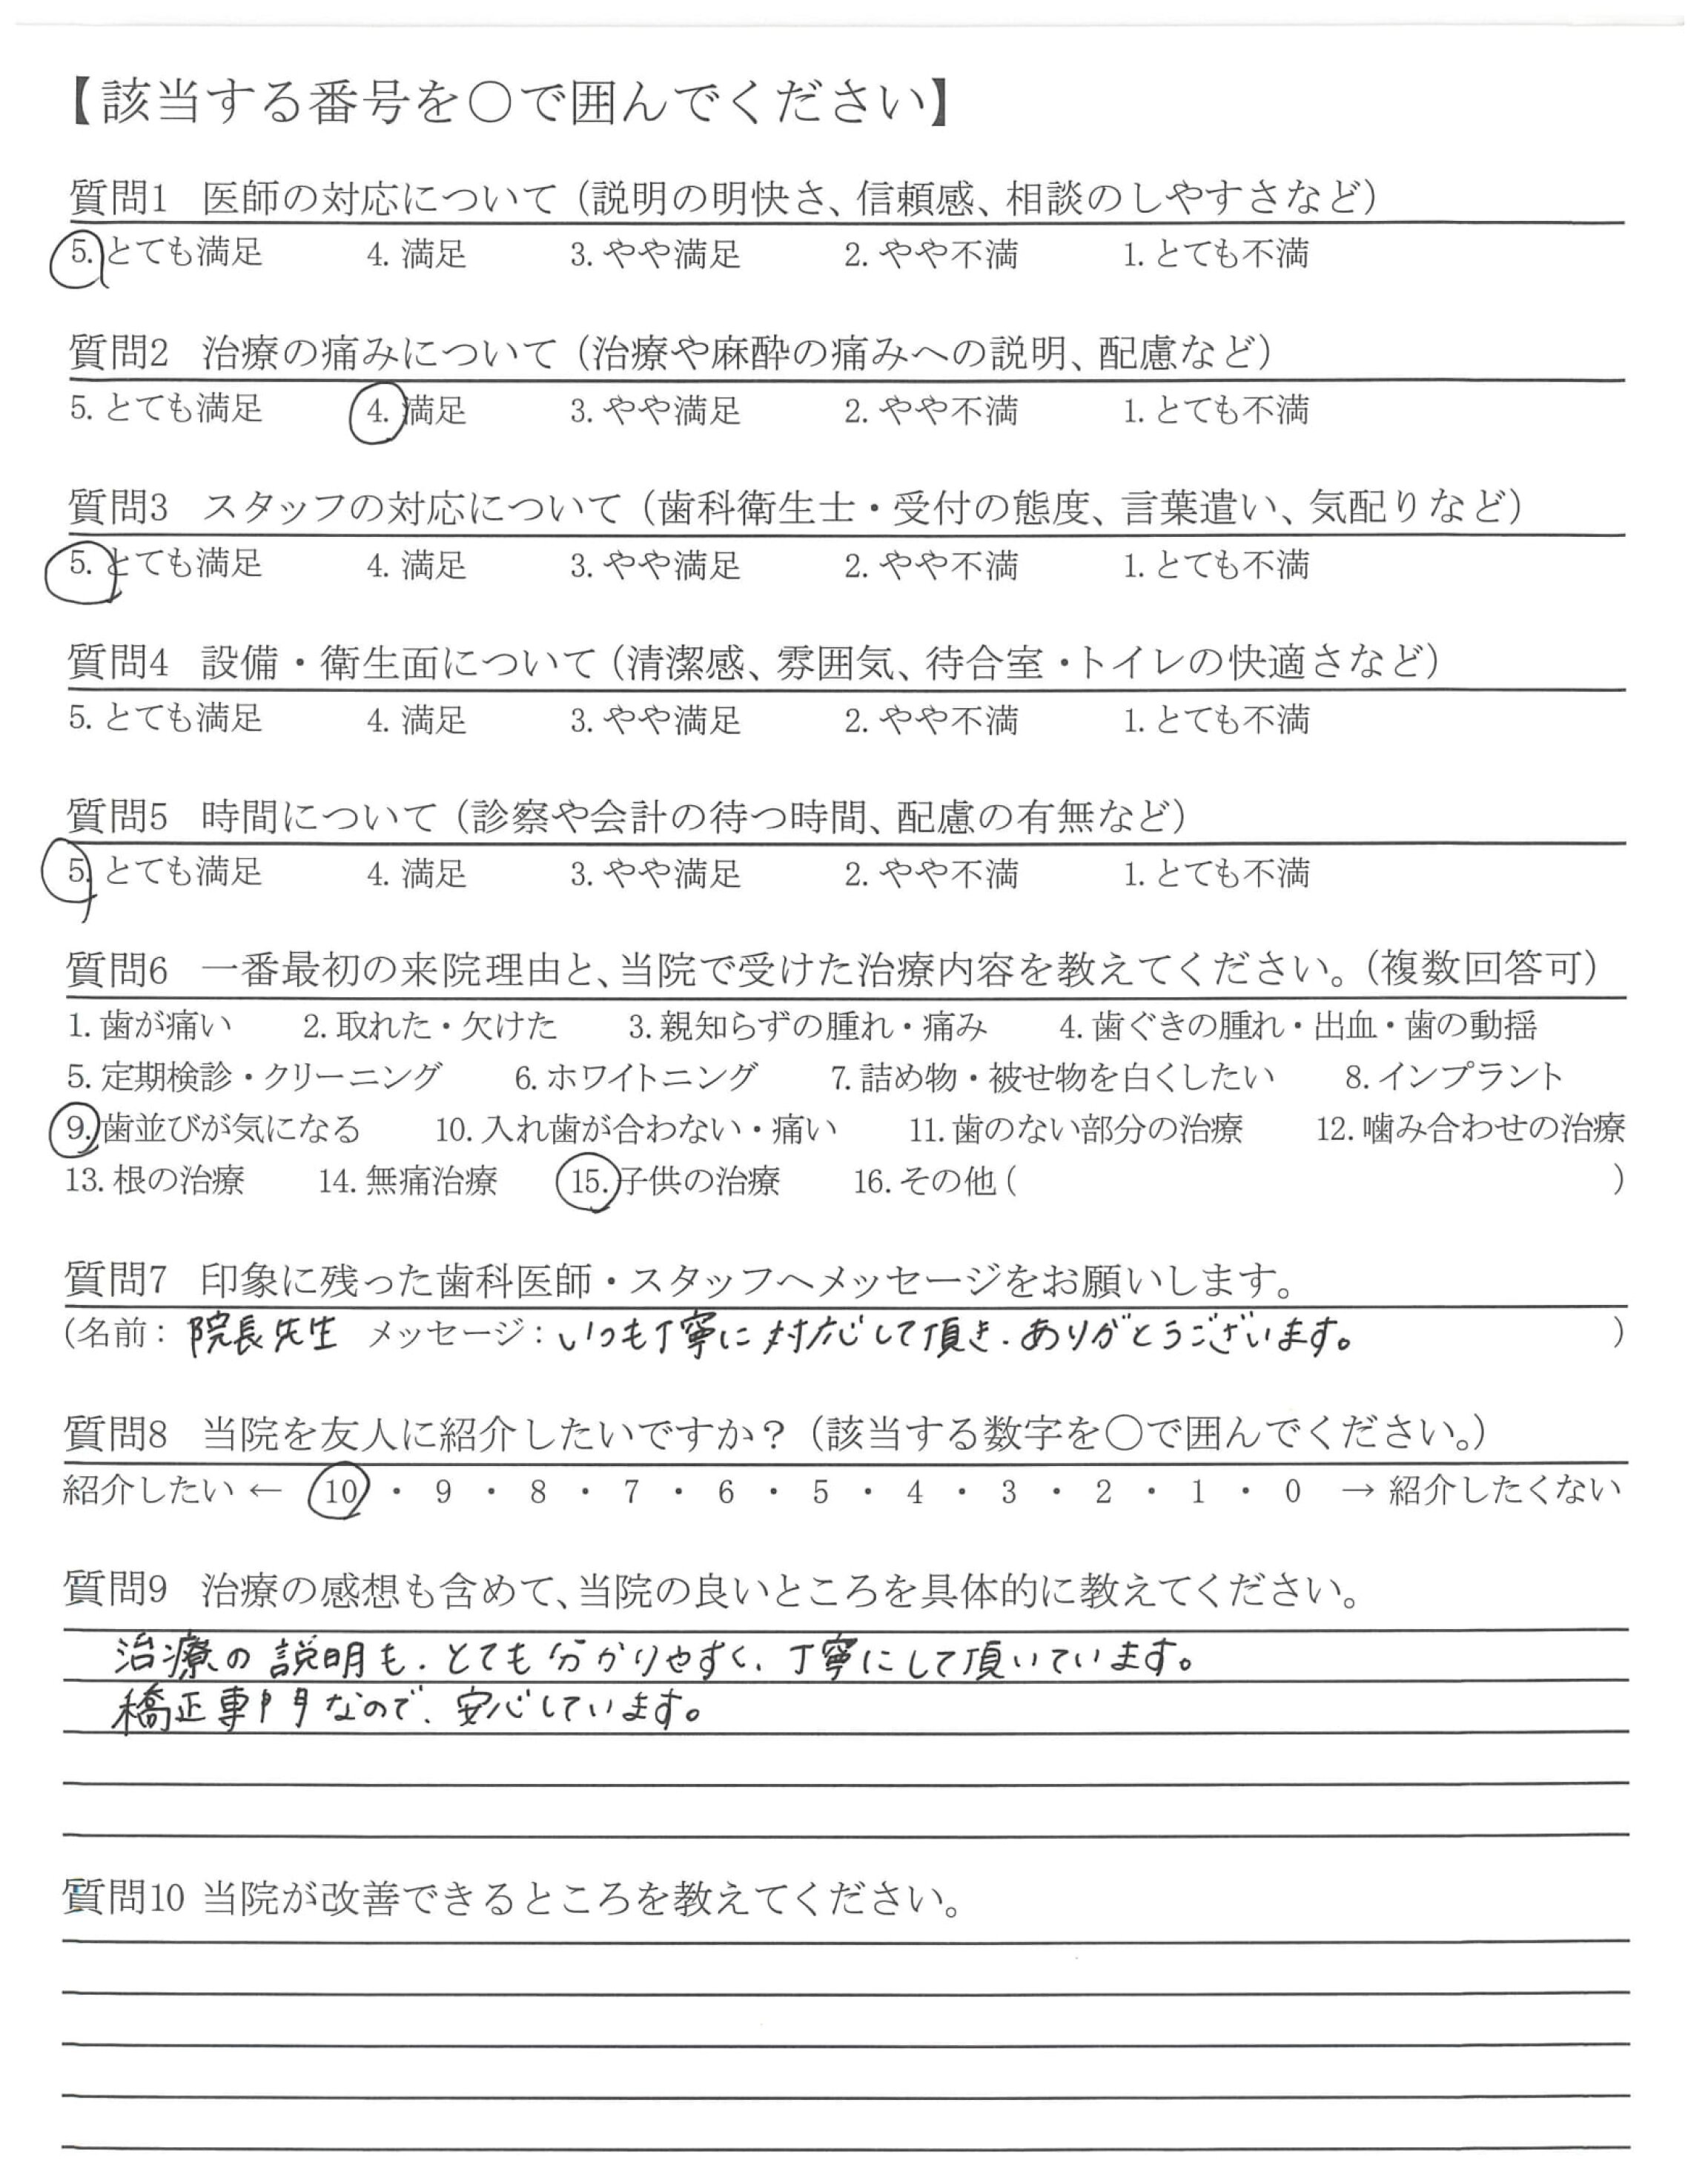 【該当する番号を○で囲んでください】
質問1 医師の対応について（説明の明快さ、信頼感、相談のしやすさなど）
5. とても満足 4. 満足 3. やや満足 2. やや不満 1. とても不満
質問2 治療の痛みについて（治療や麻酔の痛みへの説明、配慮など）
5. とても満足 4. 満足 3. やや満足 2. やや不満 1. とても不満
質問3 スタッフの対応について（歯科衛生士・受付の態度、言葉遣い、気配りなど）
5. とても満足 4. 満足 3. やや満足 2. やや不満 1. とても不満
質問4 設備・衛生面について（清潔感、雰囲気、待合室・トイレの快適さなど）
5. とても満足 4. 満足 3. やや満足 2. やや不満 1. とても不満
質問5 時間について（診察や会計の待つ時間、配慮の有無など）
5. とても満足 4. 満足 3. やや満足 2. やや不満 1. とても不満
質問6 一番最初の来院理由と、当院で受けた治療内容を教えてください。（複数回答可）
1. 歯が痛い 2. 取れた・欠けた 3. 親知らずの腫れ・痛み 4. 歯ぐきの腫れ・出血・歯の動揺
5. 定期検診・クリーニング 6. ホワイトニング 7. 詰め物・被せ物を白くしたい 8. インプラント
9. 歯並びが気になる 10. 入れ歯が合わない・痛い 11. 歯のない部分の治療 12. 噛み合わせの治療
13. 根の治療 14. 無痛治療 15. 子供の治療 16. その他（ ）
質問7 印象に残った歯科医師・スタッフへメッセージをお願いします。
（名前：院長先生 メッセージ：いつも丁寧に対応して頂き、ありがとうございます。 ）
質問8 当院を友人に紹介したいですか？（該当する数字を○で囲んでください。）
紹介したい ← 10 ・ 9 ・ 8 ・ 7 ・ 6 ・ 5 ・ 4 ・ 3 ・ 2 ・ 1 ・ 0 → 紹介したくない
質問9 治療の感想も含めて、当院の良いところを具体的に教えてください。
治療の説明も、とても分かりやすく、丁寧にして頂いています。
矯正専門なので、安心しています。
質問10 当院が改善できるところを教えてください。